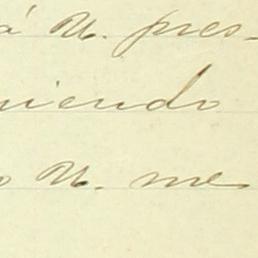 á U. pres-
iendo
o U. me